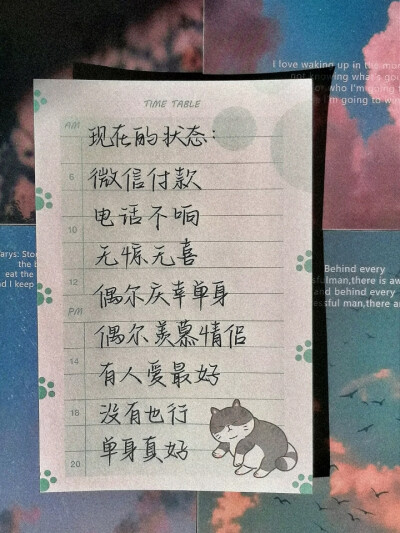 I love waking up in the mor
not knowing what's goi
or who I'm
I'm going to
TIME TABLE
AM
现在的状态:
6
微信付款
电话不响
10
无惊无喜
12
偶尔庆幸单身
PM
偶尔羡慕情侣
14
有人爱最好
18
没有也行
单身真好
20
Stoo
the b
eat the
nd I keep
Behind every
sfulman, there is aw
and behind every
essful man, there ar